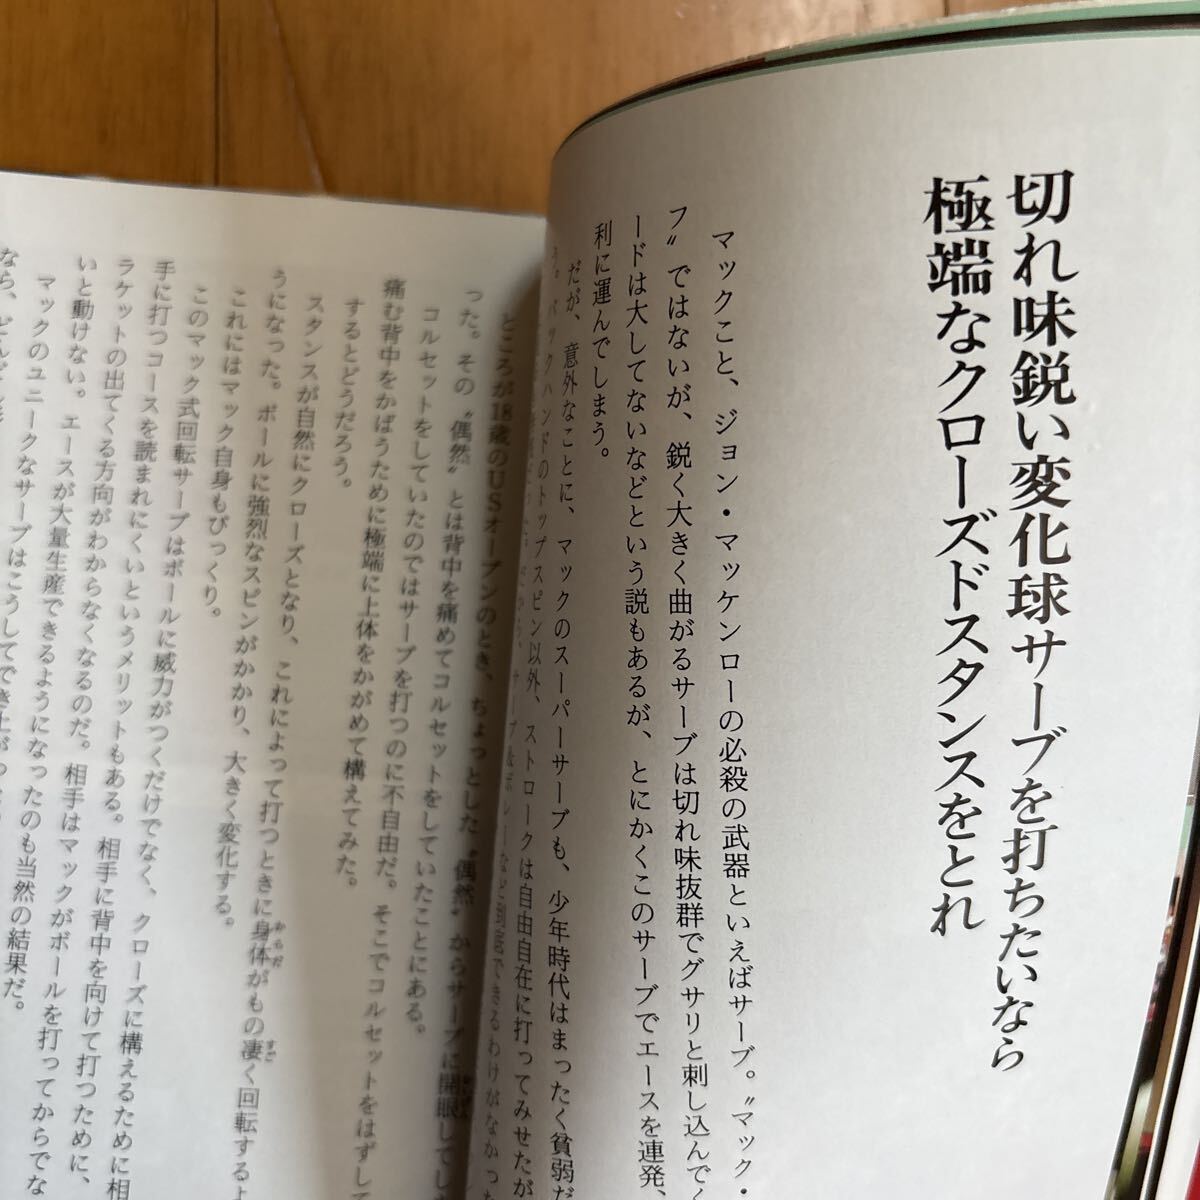 切れ味鋭い変化球サーブを打ちたいなら
極端なクローズドスタンスをとれ
マックこと、ジョン・マッケンローの必殺の武器といえばサーブ。〝マック・
フ〟ではないが、鋭く大きく曲がるサーブは切れ味抜群でグサリと刺し込んでく
ードは大してないなどという説もあるが、とにかくこのサーブでエースを連発、
利に運んでしまう。
だが、意外なことに、マックのスーパーサーブも、少年時代はまったく貧弱だ
う。バックハンドのトップスピン以外、ストロークは自由自在に打ってみせたが
だから、サーブ&ボレーなど到底できるわけがなかった
ところが18歳のUSオープンのとき、ちょっとした〝偶然〟からサーブに開眼してしま
った。その〝偶然〟とは背中を痛めてコルセットをしていたことにある。
コルセットをしていたのではサーブを打つのに不自由だ。そこでコルセットをはずして
痛む背中をかばうために極端に上体をかがめて構えてみた。
するとどうだろう。
スタンスが自然にクローズとなり、これによって打つときに身体がもの凄く回転するよ
うになった。ボールに強烈なスピンがかかり、大きく変化する。
これにはマック自身もびっくり。
このマック式回転サーブはボールに威力がつくだけでなく、クローズに構えるために相
手に打つコースを読まれにくいというメリットもある。相手に背中を向けて打つために、
ラケットの出てくる方向がわからなくなるのだ。相手はマックがボールを打ってからでな
いと動けない。エースが大量生産できるようになったのも当然の結果だ。
マックのユニークなサーブはこうしてでき上がっ
なら、どんど